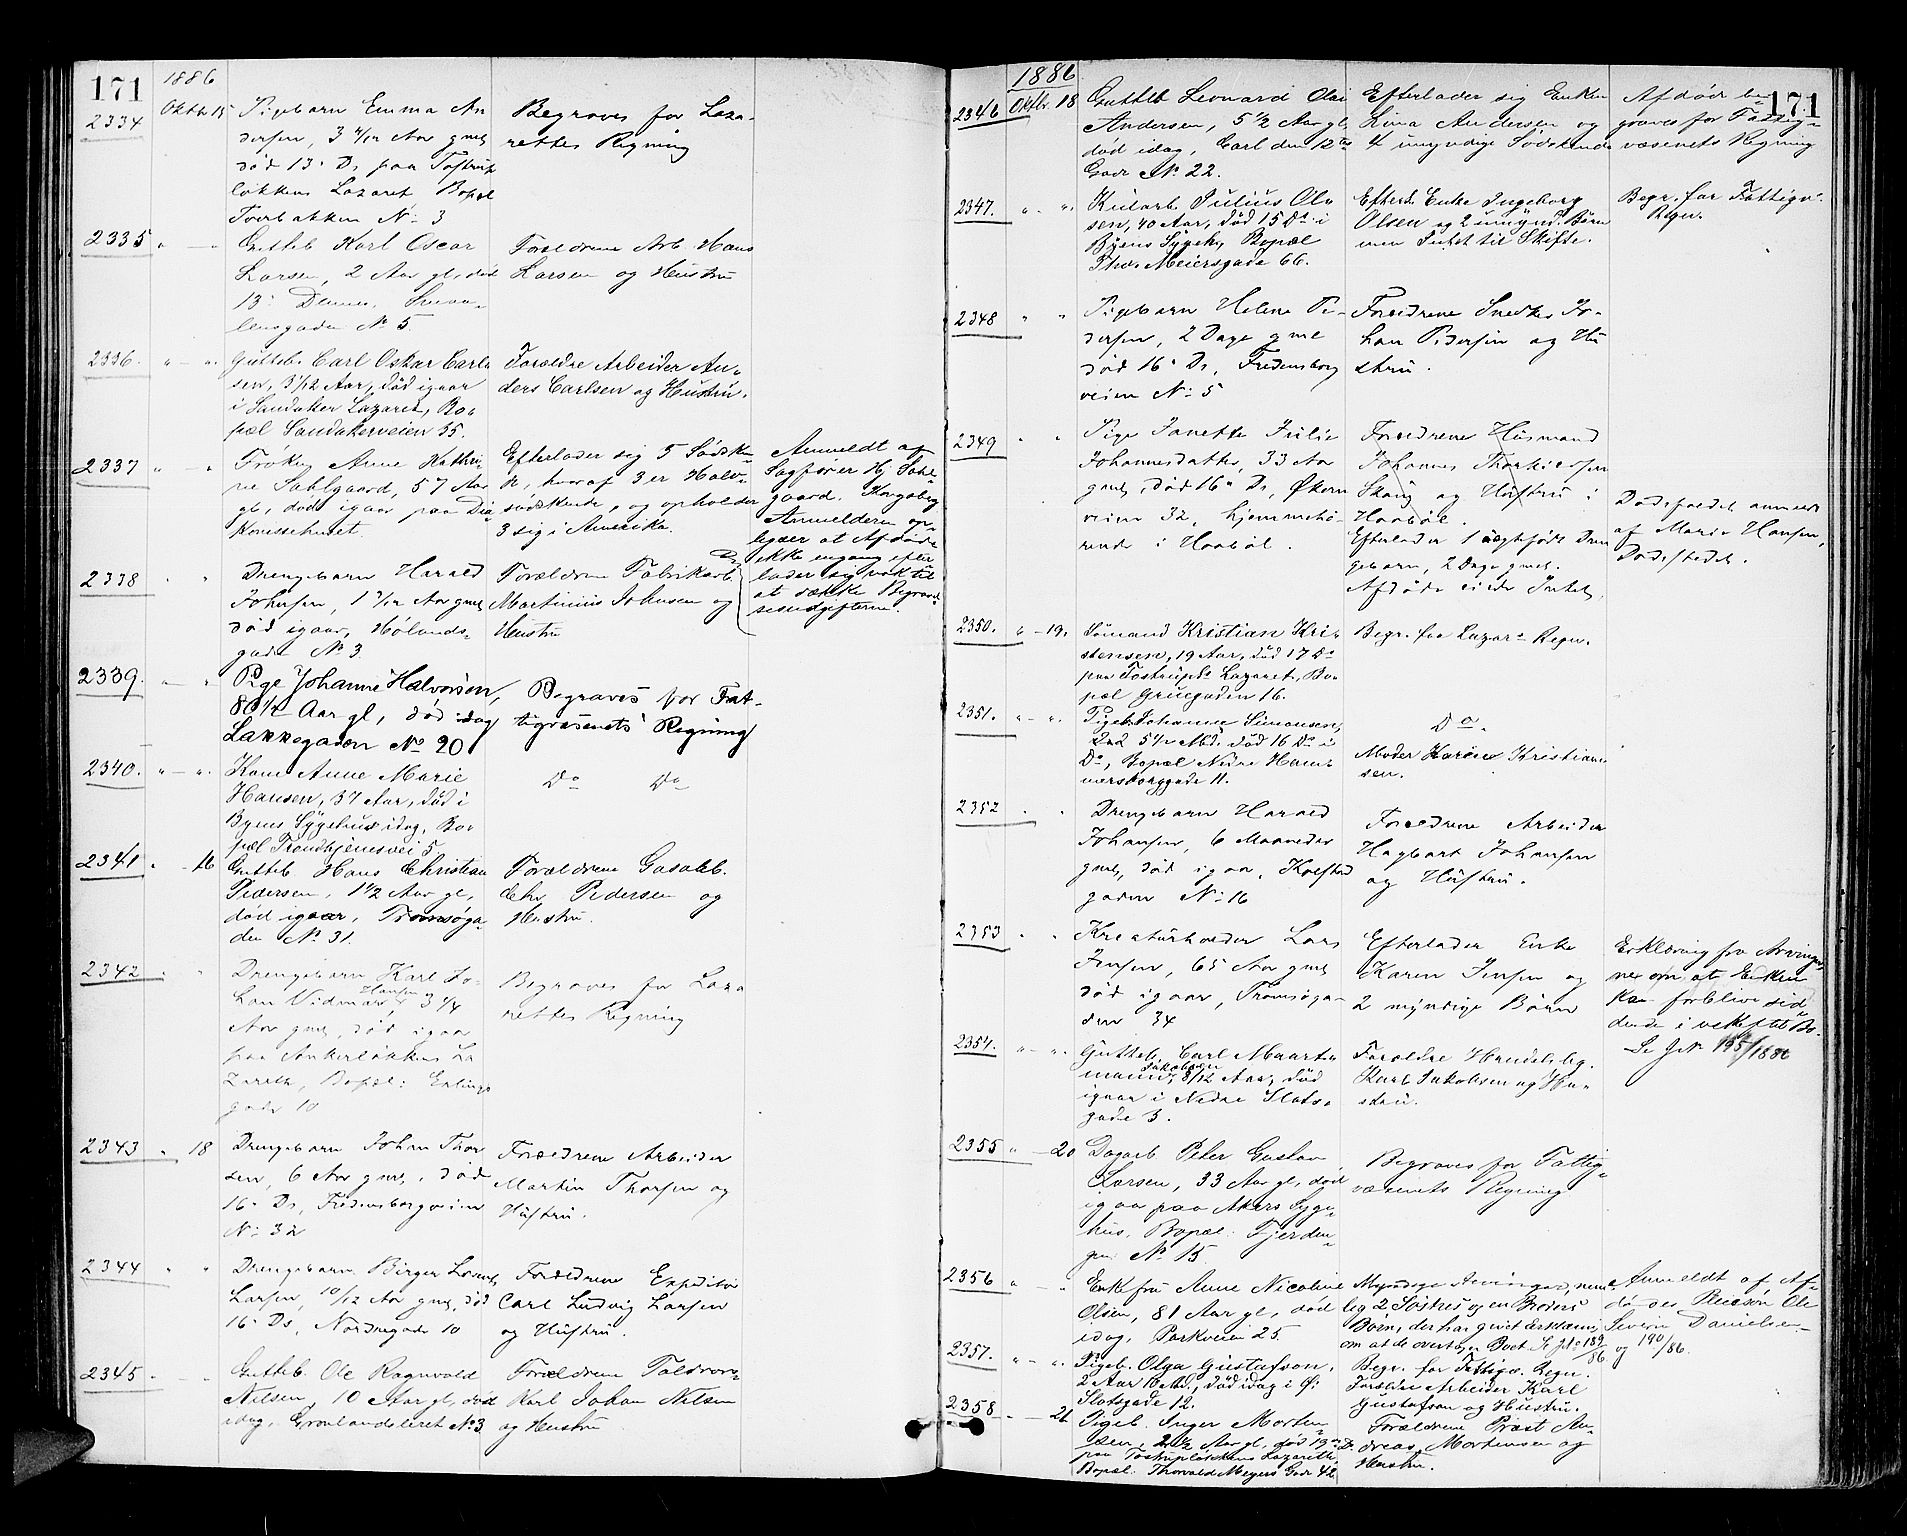 171
1886
2334 Oktbr 15 Pigebarn Emma An
dersen, 3 4/12 Aar gml
død 13 Ds paa Toftrup
løkkens Lazaret Bopæl
Torbakken No 3
Begraves for Laza-
rettes Regning
2335 " — " Gutteb. Karl Oscar
Larsen, 2 Aar gl, død
13 Dennes, Smaa-
lensgaden No 5.
Forældrene Arb. Hans
Larsen og Hustru
2336. " — " Gutteb. Carl Oskar Carl
sen, Aar, død igaar
i Sandaker Lazaret, Bo-
pæl Sandakerveien 35.
Forældre Arbeider An-
ders Carlsen og Hustru.
2337 " — " Frøken Anne Kathri-
ne Sahlgaard, 57 Aar
gl, død igaar paa Dia-
konissehuset.
Efterlader sig 5 Sødsken
de, hvoraf 3 er Halv-
sødskende, og opholder
3 sig i Amerika.
Anmeldt af
Sagfører Hj Sahl-
gaard. Kongsberg
Anmelderen op-
lyser at Afdøde
ikke engang efter-
lader sig nok til
at række Begravel-
sesudgifterne.
2338 " " Drengebarn Harald
Johnsen, 1 Aar gml
død igaar, Hølands-
gade No 3.
Forældrene Fabrikarb.
Martinius Johnsen og
Hustru
2339. " — " Pige Johanne Halvorsen,
80 1/2 Aar gl, død idag
Lakkegaden No 20
Begraves for Fat-
tigvæsenets Regning
2340. " — " Kone Anne Marie
Hansen, 37 Aar, død i
Byens Sygehus idag, Bo-
pæl Trondhjemsvei 5.
Do Do
2341 " — 16 Gutteb. Hans Christian
Pedersen, 1 1/2 Aar gl,
død igaar, Tromsøga-
den No 31.
Forældrene Gasarb.
Chr Pedersen og
Hustru.
2342 " " Drengebarn Karl Jo-
han Vidmar Hansen, 3 1/4
Aar gml, død igaar
paa Ankerløkkens La
zareth, Bopæl: Erlings
gade 10
Begraves for Laza
rettes Regning
2343 " 18 Drengebarn Johan Thor
sen, 6 Aar gml, død
16 Ds, Fredensborgveien
No 32
Forældrene Arbeider
Martin Thorsen og
Hustru.
2344 " " Drengebarn Birger
Larsen, 10/12 Aar gml, død
16 Ds, Nordregade 10
Forældrene Expeditør
Carl Ludvig Larsen
og Hustru.
2345 Gutteb. Ole Ragnvald
Nilsen, 10 Aar gl, død
idag, Grønlandsleret No 3
Forældrene Toldvor-
Karl Johan Nilsen
og Hustru
1886
171
2346 Oktbr. 18 Gutteb Leonard Olai
Andersen, 5 1/2 Aar gl,
død idag, Carl den 12tes
Gade No 22.
Efterlader sig Enken
Lina Andersen og
4 umyndige Sødskende
Afdøde be
graves for Fattig-
væsenets Regning
2347. " " Kularb. Julius Ol
sen, 40 Aar, død 15 Ds i
Byens Sygeh, Bopæl
Thv. Meiersgade 66.
Efterl. Enke Ingeborg
Olsen og 2 umynd. Børn
men Intet til Skifte.
Begr. for Fattigv.
Regn.
2348 " " Pigebarn Helene Pe-
dersen, 2 Dage gml
død 16 Ds, Fredensborg
veien No 5
Forældrene Snedker Jo-
han Pedersen og Hu
stru.
2349 " " Pige Janette Julie
Johannesdatter, 33 Aar
gml, død 16 Ds, Økern
veien 32, hjemmehø-
rende i Haabøl.
Forældrene Husmand
Johannes Thorkildsen
Skaug og Hustru i
Haabøl.
Efterlader 1 uægtefødt Dren
gebarn, 2 Dage gml.
Afdøde eiede Intet.
Dødsfaldet anmeldt
af Marie Hansen,
Dødsstedet.
2350. " — 19. Sømand Kristian Kri-
stensen, 19 Aar, død 17 Ds
paa Toftrups Lazaret, Bo-
pæl Gruegaden 16.
Begr. for Lazar. Regn.
2351. " — " Pigeb. Johanne Simonsen,
Md. død 16 Ds i
Do, Bopæl Nedre Ham-
mersborggade 11.
Do.
Moder Karine Kristian
sen.
2352 " Drengebarn Harald
Johansen, 6 Maaneder
gml, død igaar, Kolstad
gaden No 16
Forældrene Arbeider
Hagbart Johansen
og Hustru.
2353 " " Kreaturhandler Lars
Jensen, 65 Aar gml
død igaar, Tromsøga-
den 34
Efterlader Enke
Karen Jensen og
2 myndige Børn
Erklæring fra Arvinger-
ne om at Enken
kan forblive sid-
dende i uskiftet Bo.
Se JNo 195/1886
2354. " — " Gutteb. Carl Maart
mann Jakobsen, 8/12 Aar, død
igaar i Nedre Slots-
gade 3.
Forældre Handelsbg.
Karl Jakobsen og Hu-
stru.
2355 " — 20 Dagarb Peter Gustav
Larsen, 33 Aar gl, død
igaar paa Akers Syge-
hus, Bopæl: Fjerdin-
gen No 15
Begraves for Fattig-
væsenets Regning
2356 " — " Enkefru Anne Nicoline
Olsen, 81 Aar gl, død
idag, Parkveien 25.
Myndige Arvinger, nem-
lig 2 Søstres og en Broders
Børn, der har givet Erklæring
om at de overtager Boet. Se JNo 189/86 og 190/86.
Anmeldt af Af-
dødes Pleiesøn Ole
Severin Danielsen
2357. " — " Pigeb. Olga Gustafson,
2 Aar 10 Md., død idag i Ø.
Slotsgade 12.
Begr. for Fattigv. Regn.
Forældre Arbeider Karl
Gustafson og Hustru.
2358 — 21 Pigeb. Inger Morten
sen, 2 1/2 Aar gl, død 19 Ds
paa Toftrupløkkens Lazareth,
Bopæl: Thorvald Meyers Gade 42
Forældrene Præst An-
dreas Mortensen og
Hustru.